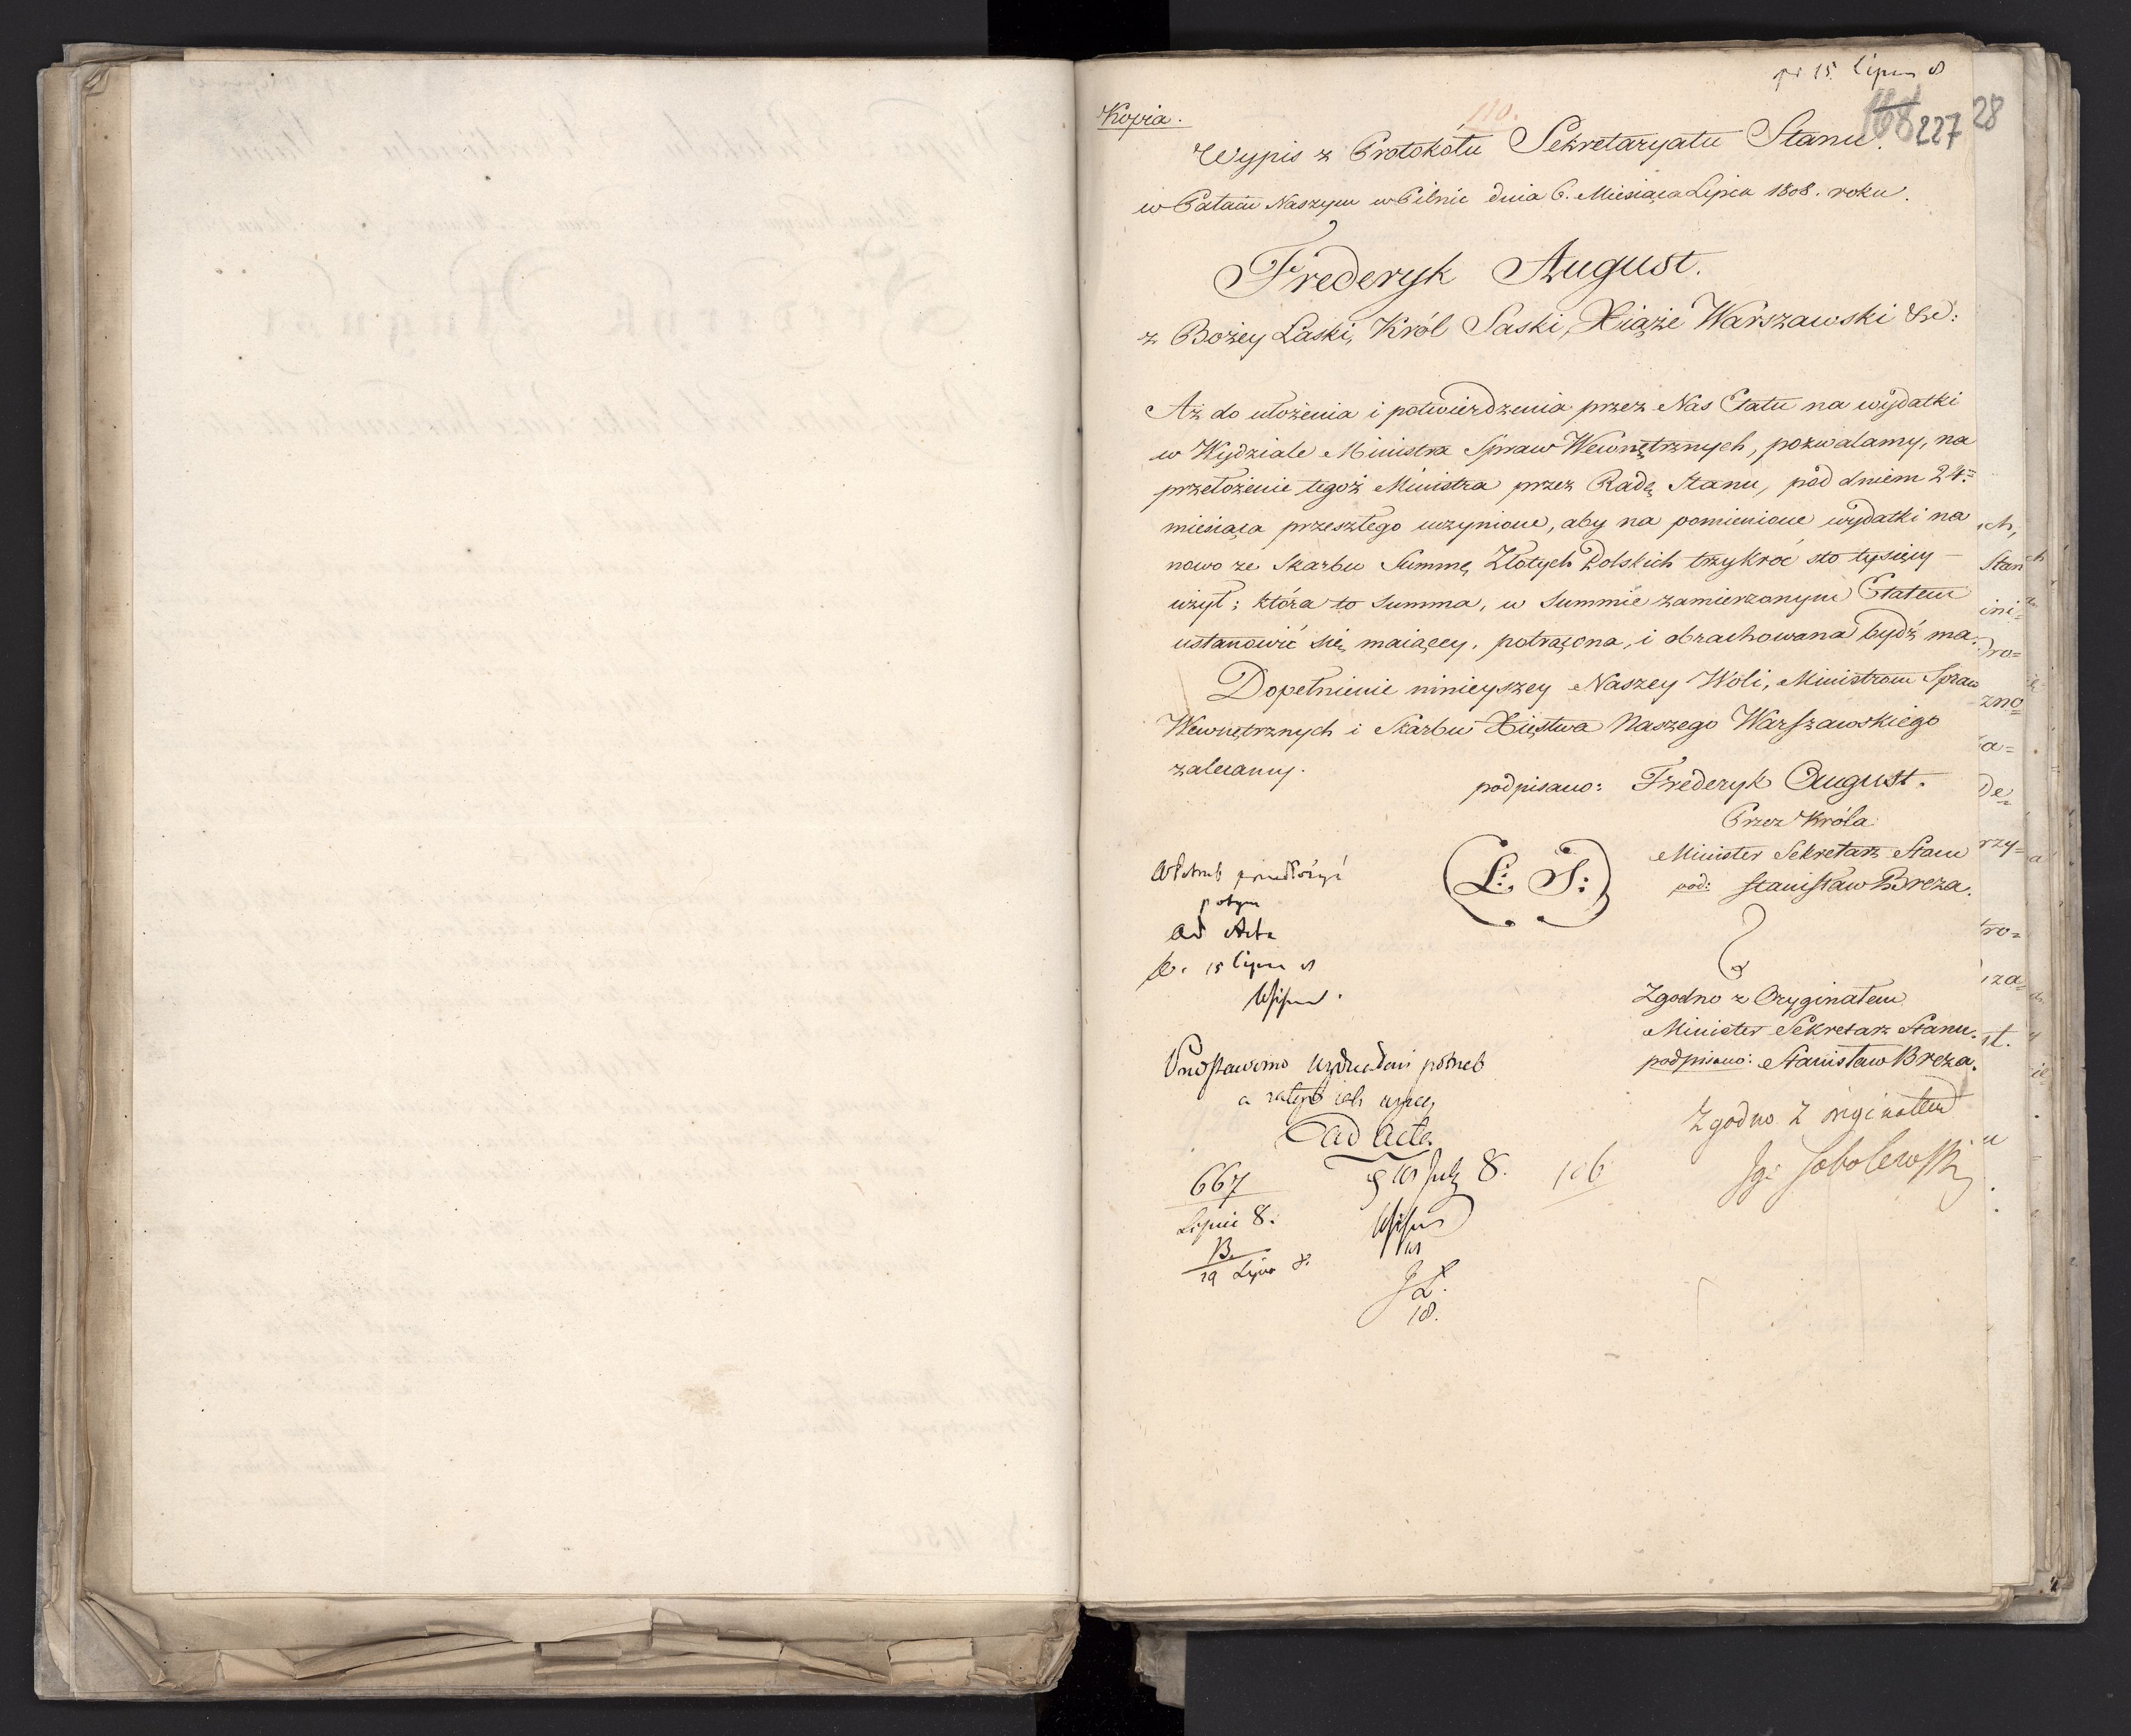 pr 15. Lipca 8
Kopia.
110.
168 227 28
Wypis z Protokołu Sekretaryatu Stanu.
w Pałacu Naszym w Pilnic dnia 6. Miesiąca Lipca 1808. roku.
Frederyk August.
z Bożey Łaski, Król Saski, Xiąże Warszawski &c:
Aż do ułożenia i potwierdzenia przez Nas Etatu na wydatki
w Wydziale Ministra Spraw Wewnętrznych, pozwalamy, na
przełożenie tegoż Ministra przez Radę Stanu, pod dniem 24.
miesiąca przeszłego uczynione, aby na pomienione wydatki na
nowo ze Skarbu Summę Złotych Polskich trzykroć sto tysięcy
użył; która to Summa, w Summie zamierzonym Etatem
ustanowić się maiącey, potrącona, i obrachowana bydź ma.
Dopełnienie ninieyszey Naszey Woli, Ministrom Spraw
Wewnętrznych i Skarbu Xięstwa Naszego Warszawskiego
zalecamy.
podpisano: Frederyk August.
Przez Króla
Minister Sekretarz Stanu
pod: Stanisław Breza.
(L: S:)
potym
ad Acta
15 Lipca 8
Zgodno z Oryginałem
Minister Sekretarz Stanu.
podpisano: Stanisław Breza.
a
ad Acta
Zgodno z originałem
Sobolewski
667
Lipca 8.
106
B
19 Lipca 8.
18.